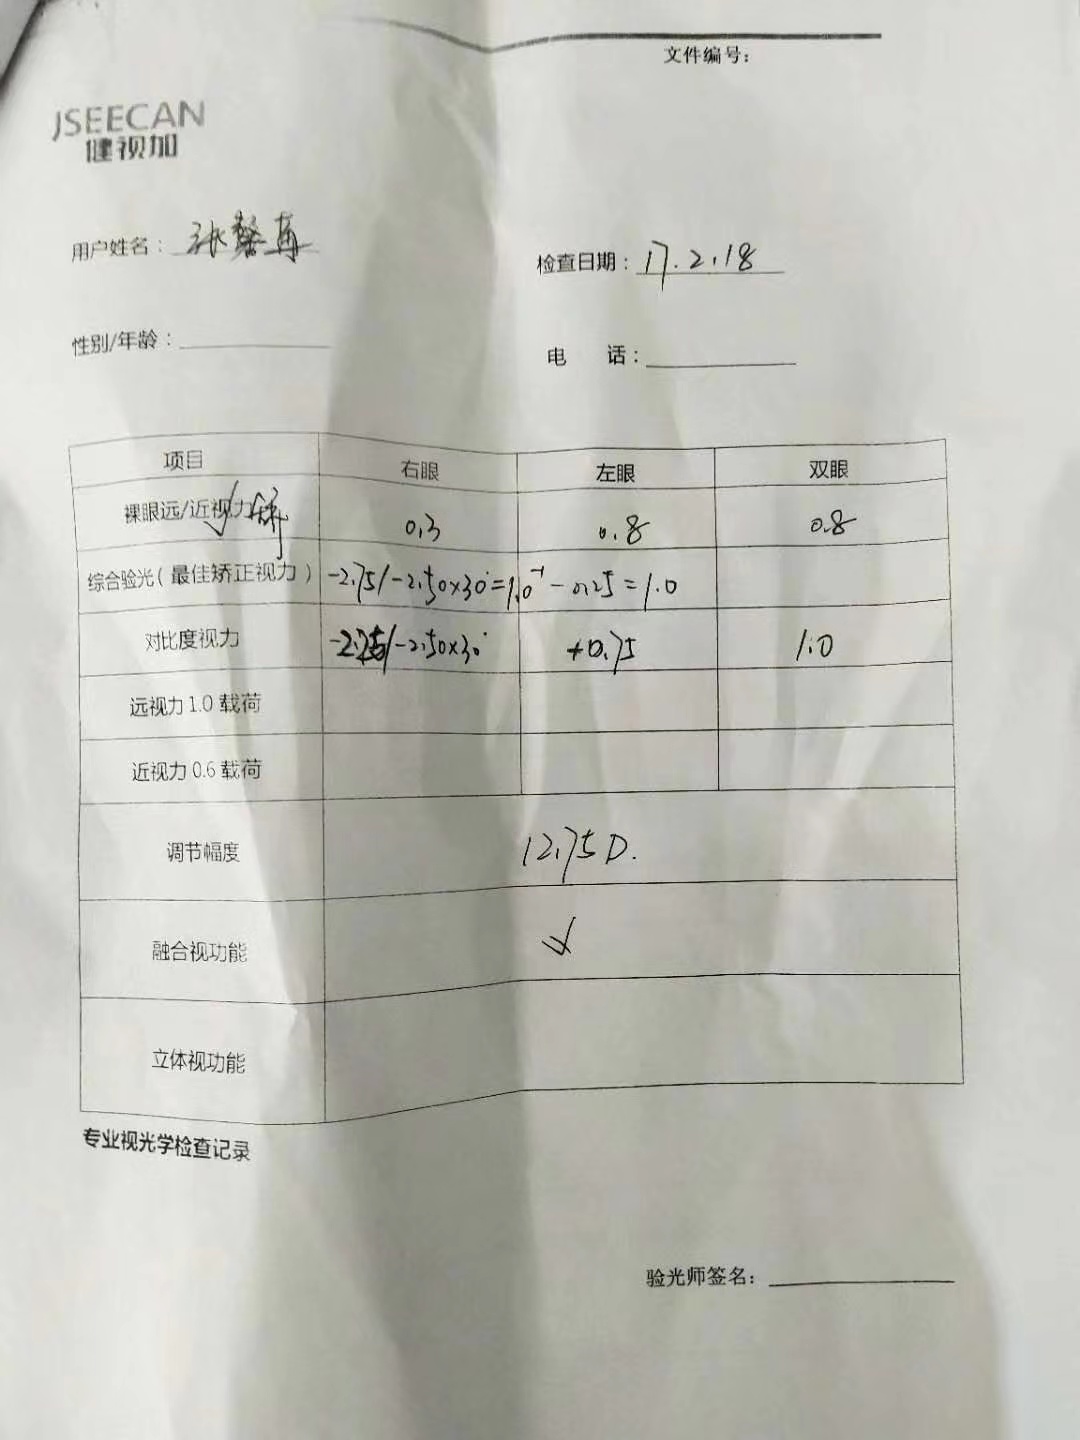 文件编号：
JSEECAN
健视加
用户姓名： 张馨
检查日期：17.2.18
性别/年龄：
电 话：
项目 右眼 左眼 双眼
裸眼远/近视力 0.3 0.8 0.8
综合验光（最佳矫正视力） -2.75/-2.50×30°=1.0⁻¹ -0.25=1.0
对比度视力 /-2.50×30° +0.75 1.0
远视力 1.0 载荷
近视力 0.6 载荷
调节幅度 12.75D.
融合视功能 ✓
立体视功能
专业视光学检查记录
验光师签名：